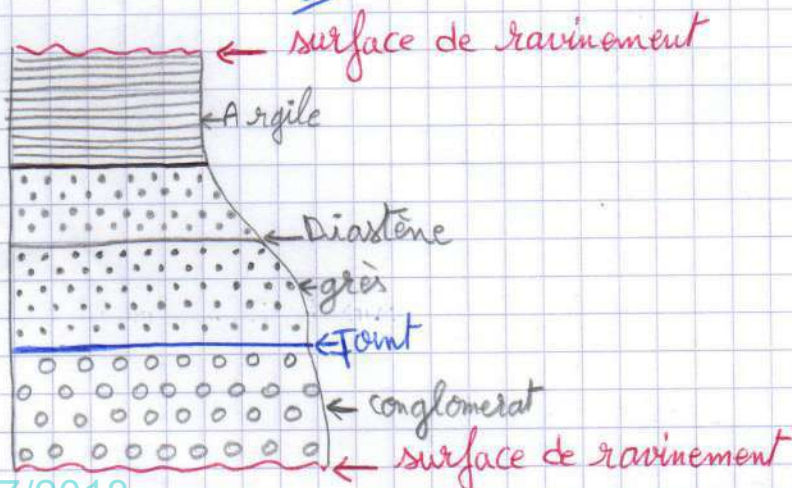 surface de ravinement
Argile
Diastène
grès
Joint
conglomerat
surface de ravinement
7/2018